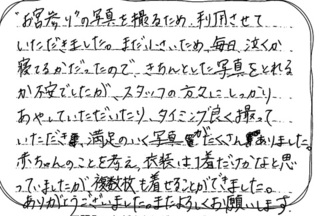 "お宮参り"の写真を撮るため、利用させて
いただきました。まだ小さいため、毎日、泣くか
寝てるかだったので、きちんとした写真をとれる
か不安でしたが、スタッフの方々にしっかり
あやしていただいたり、タイミング良く撮って
いただき、満足のいく写真がたくさんありました。
赤ちゃんのことを考え、衣装は1着だけかなと思
っていましたが、複数枚も着せることができました。
ありがとうございました。またよろしくお願いします。